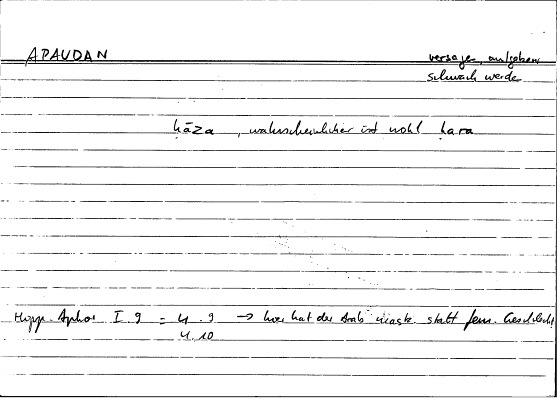 APAUDAN
versagen, aufgeben
schwach werde
ḫāza , wahrscheinlicher ist wohl ḫara
Hipp. Aphor I 9 = 4.9 → hier hat der Arab mask. statt fem. Geschlecht
4.10